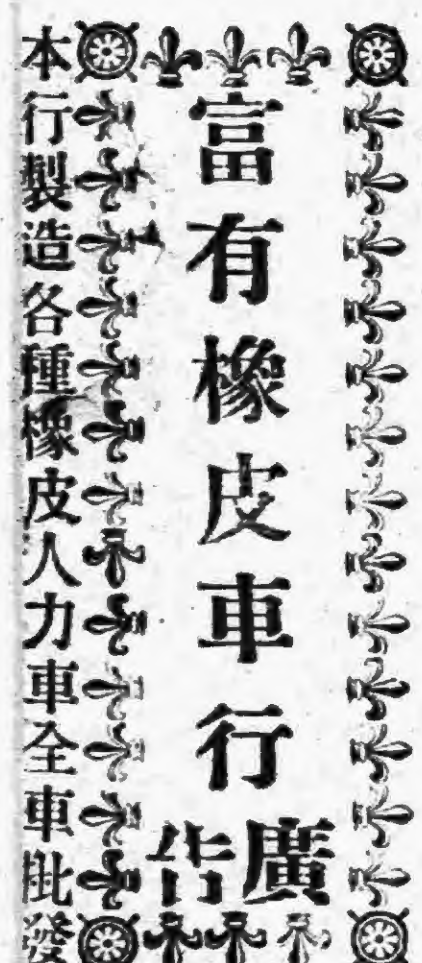 富有橡皮車行
廣告
本行製造各種橡皮人力車全車批發